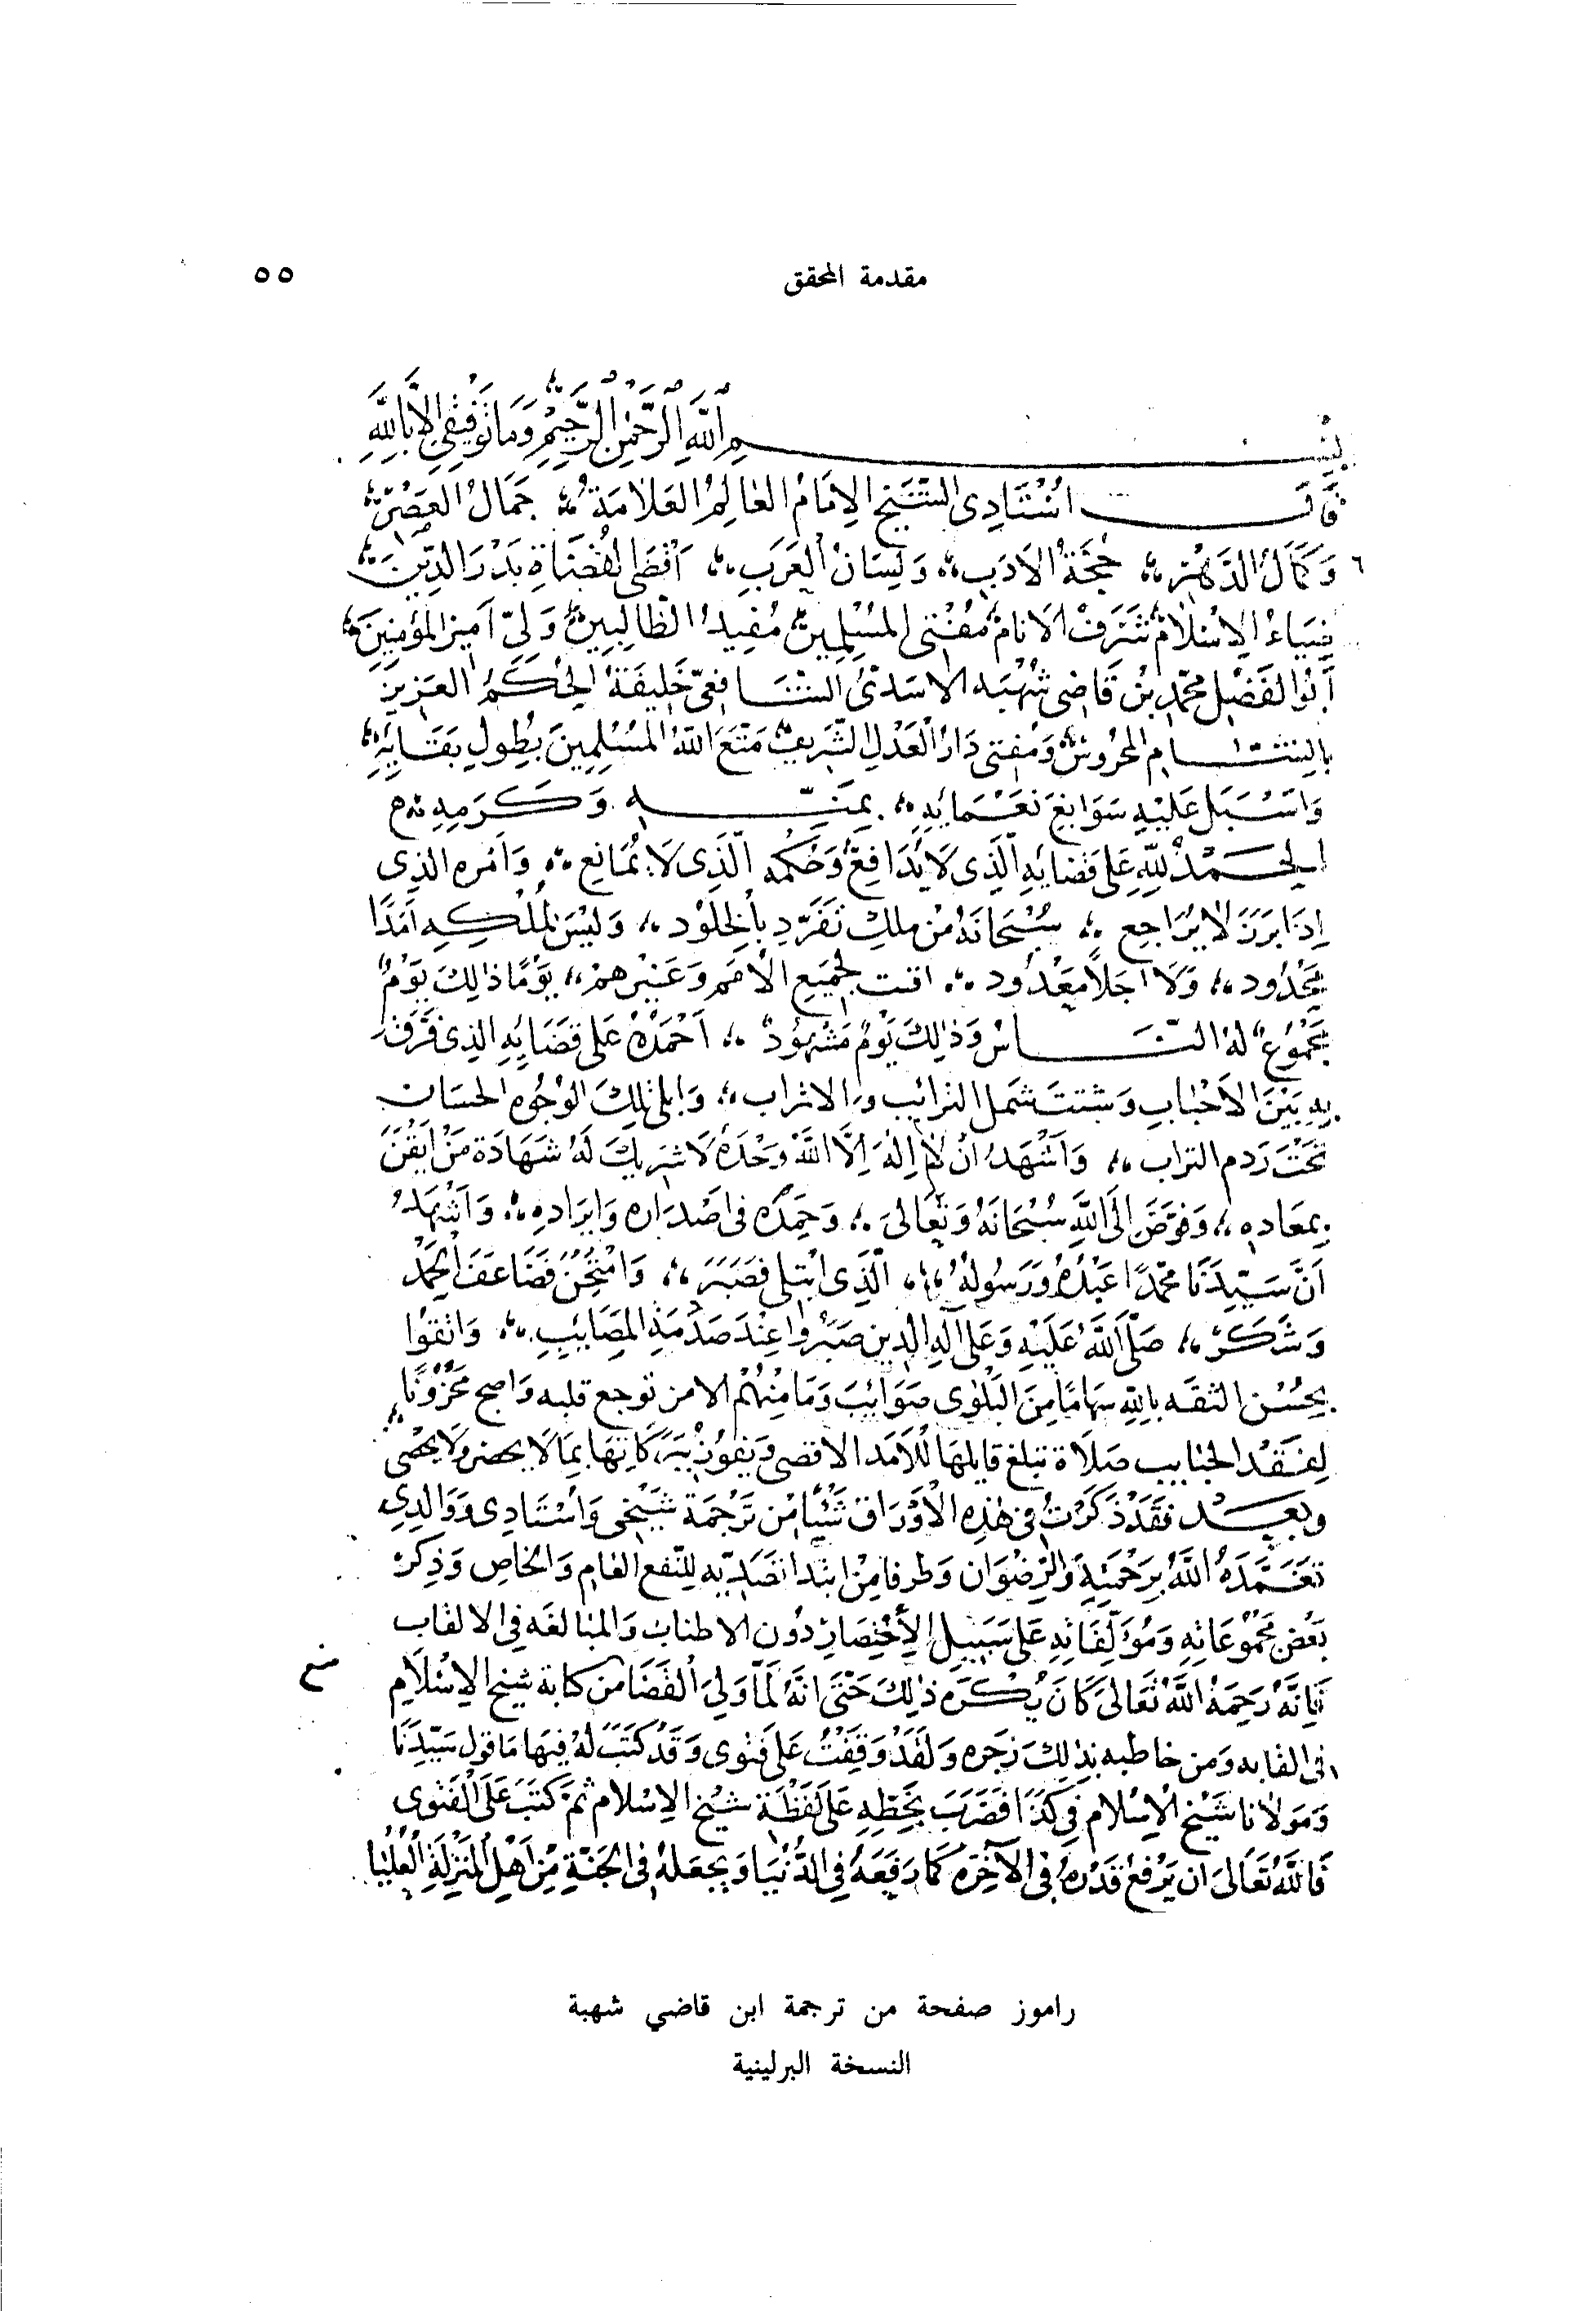 مقدمة المحقق
٥٥
بِسْمِ اللَّهِ الرَّحْمٰنِ الرَّحِيمِ وَمَا تَوْفِيقِي إِلَّا بِاللَّهِ
قَالَ أستاذي الشيخ الإمام العالم العلامة جمال العصر
وكمال الدهر حجة الأدب ولسان العرب أقضى القضاة بدر الدين
ضياء الإسلام شرف الأنام مفتي المسلمين مفيد الطالبين ولي أمير المؤمنين
أبو الفضل محمد بن قاضي شهبه الأسدي الشافعي خليفة الحكم العزيز
بالشام المحروس ومفتي دار العدل الشريف متع الله المسلمين بطول بقائه
وأسبل عليه سوابغ نعمائه بمنه وكرمه
الحمد لله على قضائه الذي لا يدافع وحكمه الذي لا يمانع وأمره الذي
إذا برز لا يراجع سبحانه من ملك تفرد بالخلود وليس لملكه أمدا
محدود ولا أجلا معدود لجميع الأمم وغيرهم يوما ذلك يوم
مجموع له الناس وذلك يوم مشهود أحمده على قضائه الذي فرق
به بين الأحباب وشتت شمل الترائب والاتراب وأبلى تلك الوجوه الحسان
تحت ردم التراب وأشهد أن لا إله إلا الله وحده لا شريك له شهادة من أيقن
بمعاده وفوض إلى الله سبحانه وتعالى وحمده في اصداره وايراده وأشهد
أن سيدنا محمدا عبده ورسوله الذي ابتلي فصبر وامتحن فضاعف الحمد
وشكر صلى الله عليه وعلى آله الذين صبروا عند صدمة المصائب واتقوا
بحسن الثقه بالله سهاما من البلوى صوائب وما منهم الا من توجع قلبه واصبح محزونا
لفقد الحبايب صلاة تبلغ قايلها للأمد الاقصى ببركاتها بما لا يحصر ولا يحصى
وبعد فقد ذكرت في هذه الأوراق شيئا من ترجمة شيخي وأستاذي ووالدي
تغمده الله برحمته والرضوان وطرفا من ابتدا تصديه للنفع العام والخاص وذكر
بعض مجموعاته ومؤلفاته على سبيل الأختصار دون الاطناب والمبالغه في الالقاب
فإنه رحمه الله تعالى كان يكره ذلك حتى انه لما ولي القضا منع من كتابة شيخ الإسلام
في القابه ومن خاطبه بذلك زجره ولقد وقفت على فتوى وقد كتب له فيها ما قول سيدنا
ومولانا شيخ الإسلام في كذا فضرب بخطه على لفظة شيخ الإسلام ثم كتب على الفتوى
فالله تعالى ان يرفع قدره في الآخره كما رفعه في الدنيا ويجعله في الجنة من أهل المنزلة العليا
راموز صفحة من ترجمة ابن قاضي شهبة
النسخة البرلينية